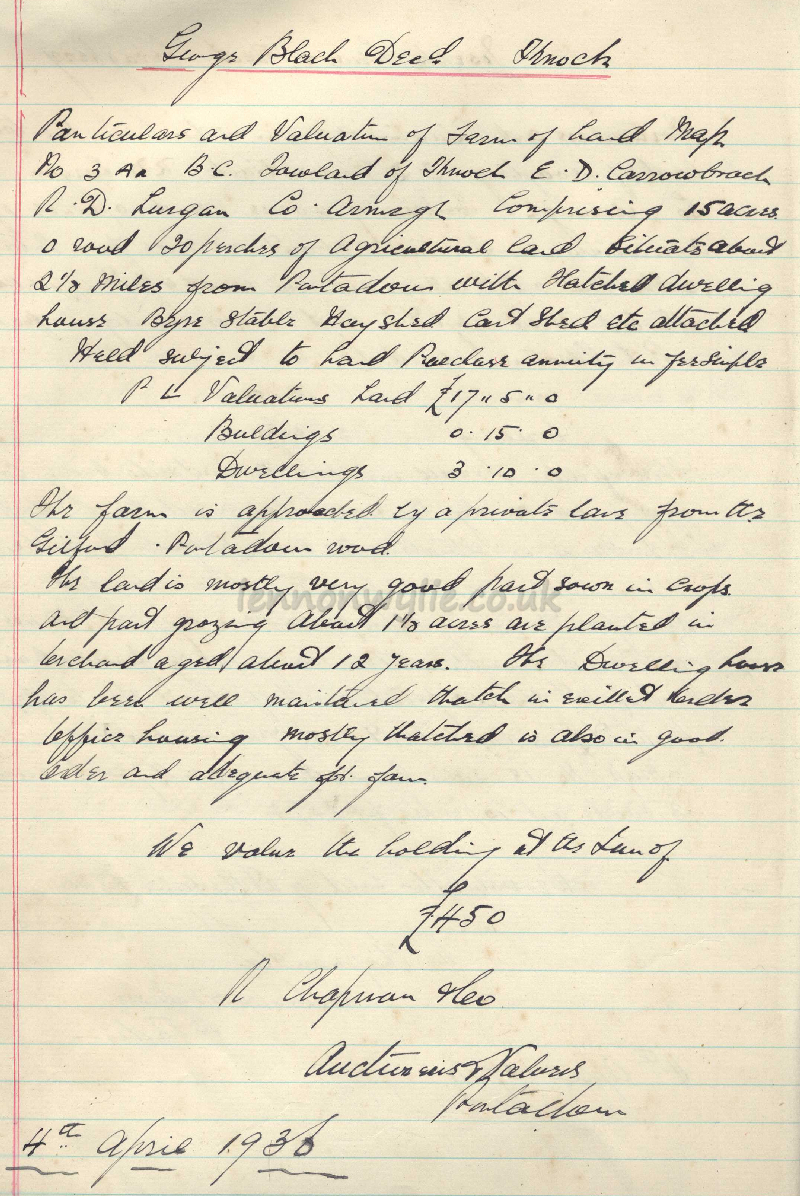 George Black Decd Knock
Particulars and Valuation of Farm of Land Map
No 3 A B.C. Townland of Knock E.D. Carrowbrack
R.D. Lurgan Co. Armagh Comprising 15 acres
0 rood 20 perches of Agricultural land situate about
2½ miles from Portadown with thatched dwelling
house Byre Stable Hayshed Cart Shed etc attached
Held subject to Land Purchase annuity in fee simple
P L Valuations Land £17 " 5 " 0
Buildings 0 . 15 . 0
Dwellings 3 . 10 . 0
The farm is approached by a private lane from the
Gilford . Portadown road.
The land is mostly very good part sown in crops
and part grazing about 1½ acres are planted in
orchard aged about 12 years. The Dwelling house
has been well maintained thatch in excellent order
office housing mostly thatched is also in good
order and adequate for farm.
We value the holding at the sum of
£450
R Chapman & Co
Auctioneers & Valuers
Portadown
4th April 1936
lennonwylie.co.uk